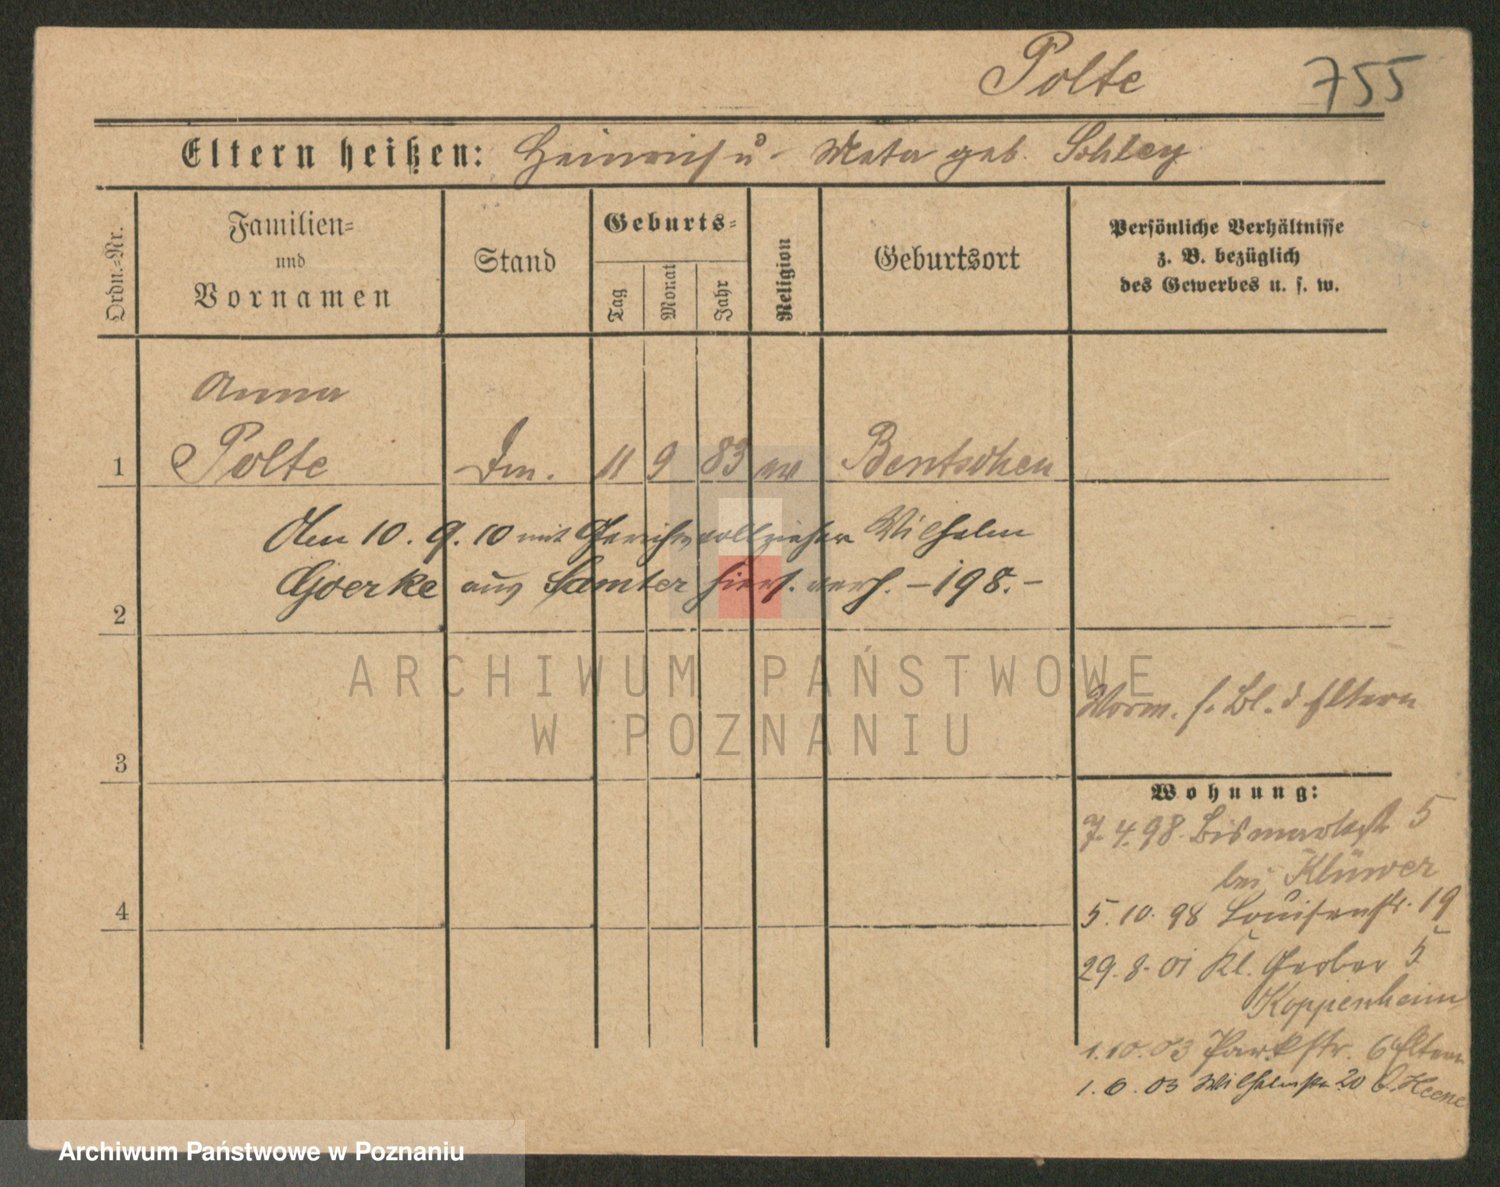 Polte 755
Eltern heißen: Heinrich u Meta geb. Schley
Ordn.-Nr.
Familien-
und
Vornamen
Stand
Geburts-
Tag
Monat
Jahr
Religion
Geburtsort
Persönliche Verhältnisse
z. B. bezüglich
des Gewerbes u. s. w.
Anna
1 Polte 11 9 83 Bentschen
Am 10. 9. 10 mit Gerichtsvollzieher Wilhelm
Goerke aus Samter hiers. verh. - 198. -
2
ARCHIWUM PAŃSTWOWE
W POZNANIU
Vorm. s. Bl. d Eltern
3
Wohnung:
7. 4. 98. Bismarckstr 5
bei Klüwer
4
5. 10. 98 Louisenstr. 19
29. 8. 01 Kl. Gerber 5
Koppenheim
1. 10. 03 Parkstr. 6 Eltern
1. 6. 03 Wilhelmstr 20 b.
Archiwum Państwowe w Poznaniu